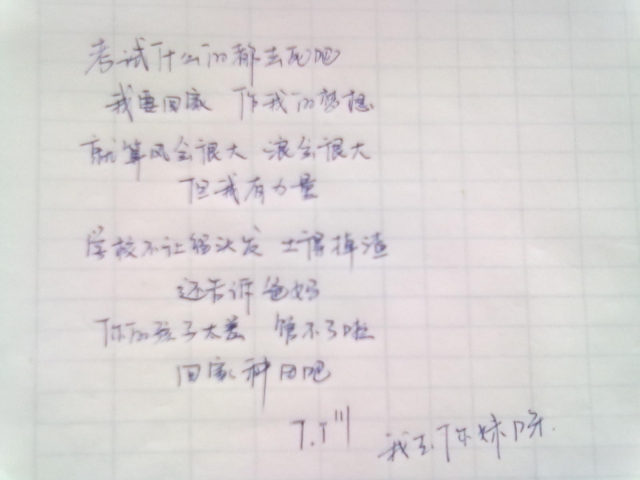 考试什么的都去死吧
我要回家 作我的梦想
就算风会很大 浪会很大
但我有力量
学校不让留头发 土得掉渣
还告诉爸妈
你的孩子太差 管不了啦
回家种田吧
T.T'''
我去,你妹呀.